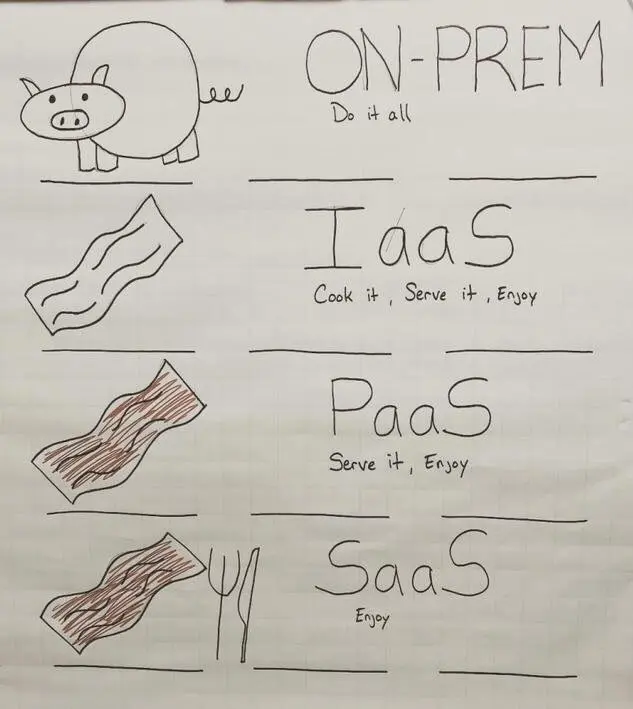 ON-PREM
Do it all
IaaS
Cook it, Serve it, Enjoy
PaaS
Serve it, Enjoy
SaaS
Enjoy